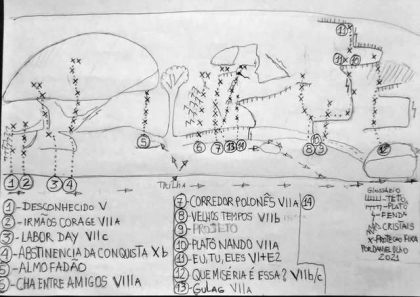 13
11 10
1 2 3 4 5 6 7 13 14 8 9 10 12
TRILHA
1-DESCONHECIDO V
2-IRMÃOS CORAGE VIIa
3-LABOR DAY VIIc
4-ABSTINENCIA DA CONQUISTA Xb
5-ALMOFADÃO
6-CHA ENTRE AMIGOS VIIIa
7-CORREDOR POLONÊS VIIa 14
8-VELHOS TEMPOS VIIb
9-PROJETO
10-PLATÔ NANDO VIIa
11-EU, TU, ELES VI+E2
12-QUE MISÉRIA É ESSA? VIIb/c
13-GULAG VIIa
GLOSSÁRIO
-TETO
-PLATÔ
-FENDA
-CRISTAIS
X-PROTEÇÃO FIXA
POR DANIEL OLÃO
2021